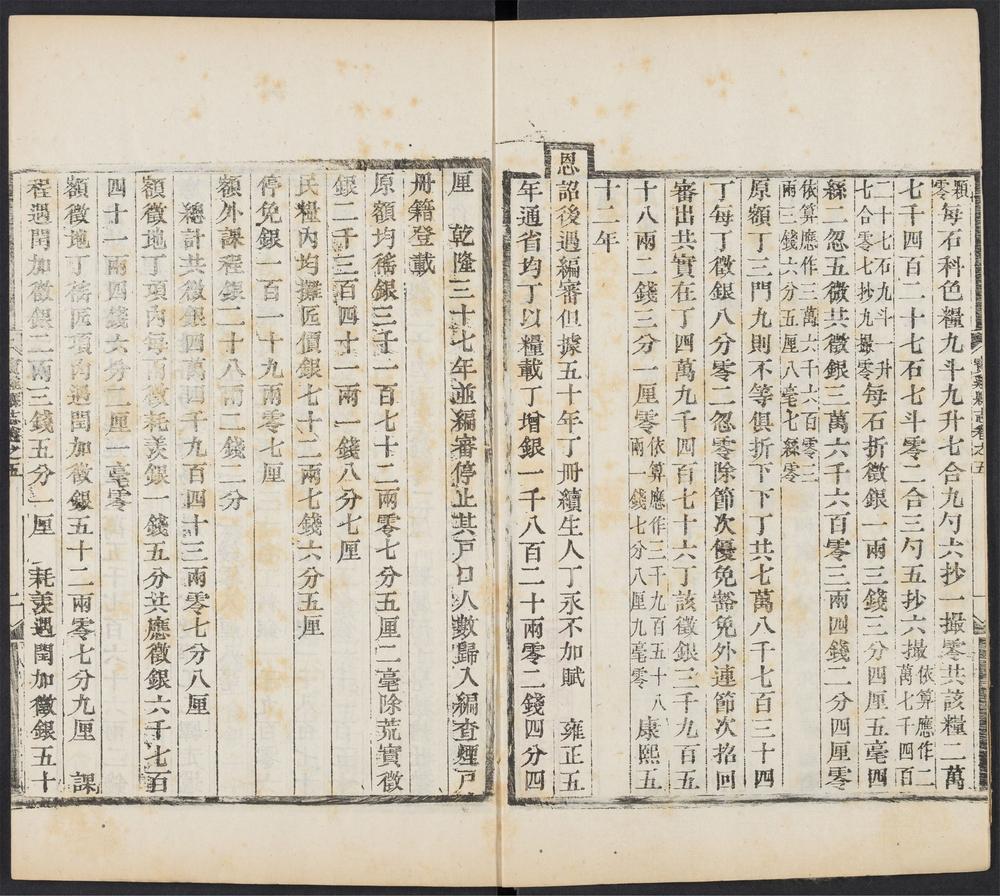 顆零每石科色糧九斗九升七合九勺六抄一撮零共該糧二萬
七千四百二十七石七斗零二合三勺五抄六撮依算應作二萬七千四百
二十七石九斗一升七合零七抄九撮零每石折徵銀一兩三錢三分四厘五毫四
絲二忽五微共徵銀三萬六千六百零三兩四錢二分四厘零
依算應作三萬六千六百零三兩三錢六分五厘八毫七絲零
原額丁三門九則不等俱折下下丁共七萬八千七百三十四
丁每丁徵銀八分零二忽零除節次優免豁免外連節次招回
審出共實在丁四萬九千四百七十六丁該徵銀三千九百五
十八兩二錢三分一厘零依算應作三千九百五十八兩一錢七分八厘九毫零康熙五
十二年
恩詔後遇編審但據五十年丁冊續生人丁永不加賦 雍正五
年通省均丁以糧載丁增銀一千八百二十兩零二錢四分四
寶雞縣志卷之五
厘 乾隆三十七年並編審停止其戸口人數歸入編查煙戸
冊籍登載
原額均徭銀三千一百七十二兩零七分五厘二毫除荒實徵
銀二千三百四十一兩一錢八分七厘
民糧內均攤匠價銀七十二兩七錢六分五厘
停免銀一百一十九兩零七厘
額外課程銀二十八兩二錢二分
總計共徵銀四萬四千九百四十三兩零七分八厘
額徵地丁項內每兩徵耗羨銀一錢五分共應徵銀六千七百
四十一兩四錢六分二厘一毫零
額徵地丁徭匠項內遇閏加徵銀五十二兩零七分九厘 課
程遇閏加徵銀二兩三錢五分一厘 耗羨遇閏加徵銀五十
寶雞縣志卷之五 二